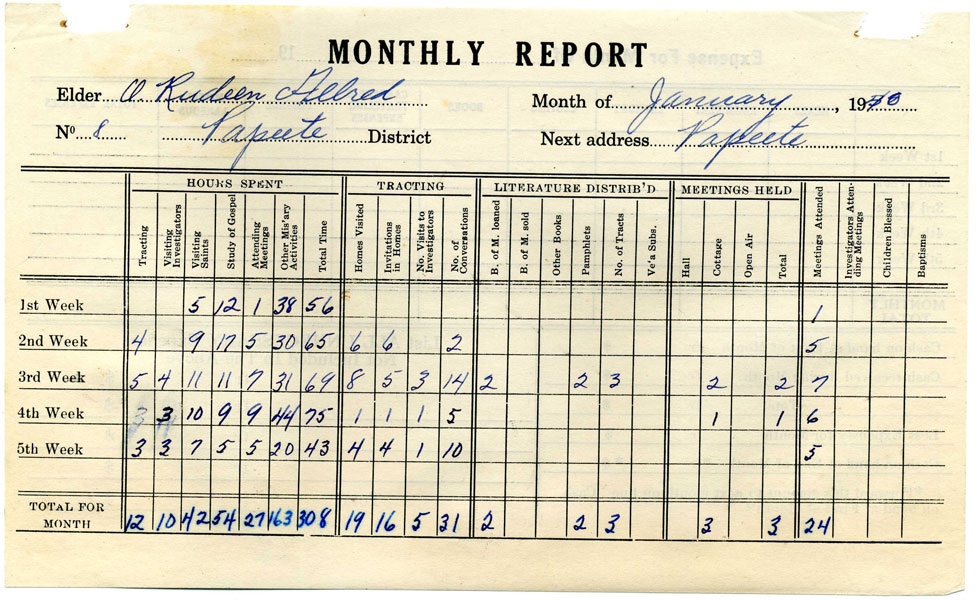 MONTHLY REPORT
Elder O Rudeen Allred Month of January, 1950
No 8 Papeete District Next address Papeete
HOURS SPENT TRACTING LITERATURE DISTRIB'D MEETINGS HELD
Tracting Visiting Investigators Visiting Saints Study of Gospel Attending Meetings Other Mis'ary Activities Total Time Homes Visited Invitations in Homes No. Visits to Investigators No. of Conversations B. of M. loaned B. of M. sold Other Books Pamphlets No. of Tracts Ve'a Subs. Hall Cottage Open Air Total Meetings Attended Investigators Attending Meetings Children Blessed Baptisms
1st Week 5 12 1 38 56 1
2nd Week 4 9 17 5 30 65 6 6 2 5
3rd Week 5 4 11 11 7 31 69 8 5 3 14 2 2 3 2 2 7
4th Week 3 10 9 9 44 75 1 1 1 5 1 1 6
5th Week 3 3 7 5 5 20 43 4 4 1 10 5
TOTAL FOR MONTH 12 10 42 54 27 163 308 19 16 5 31 2 2 3 3 3 24